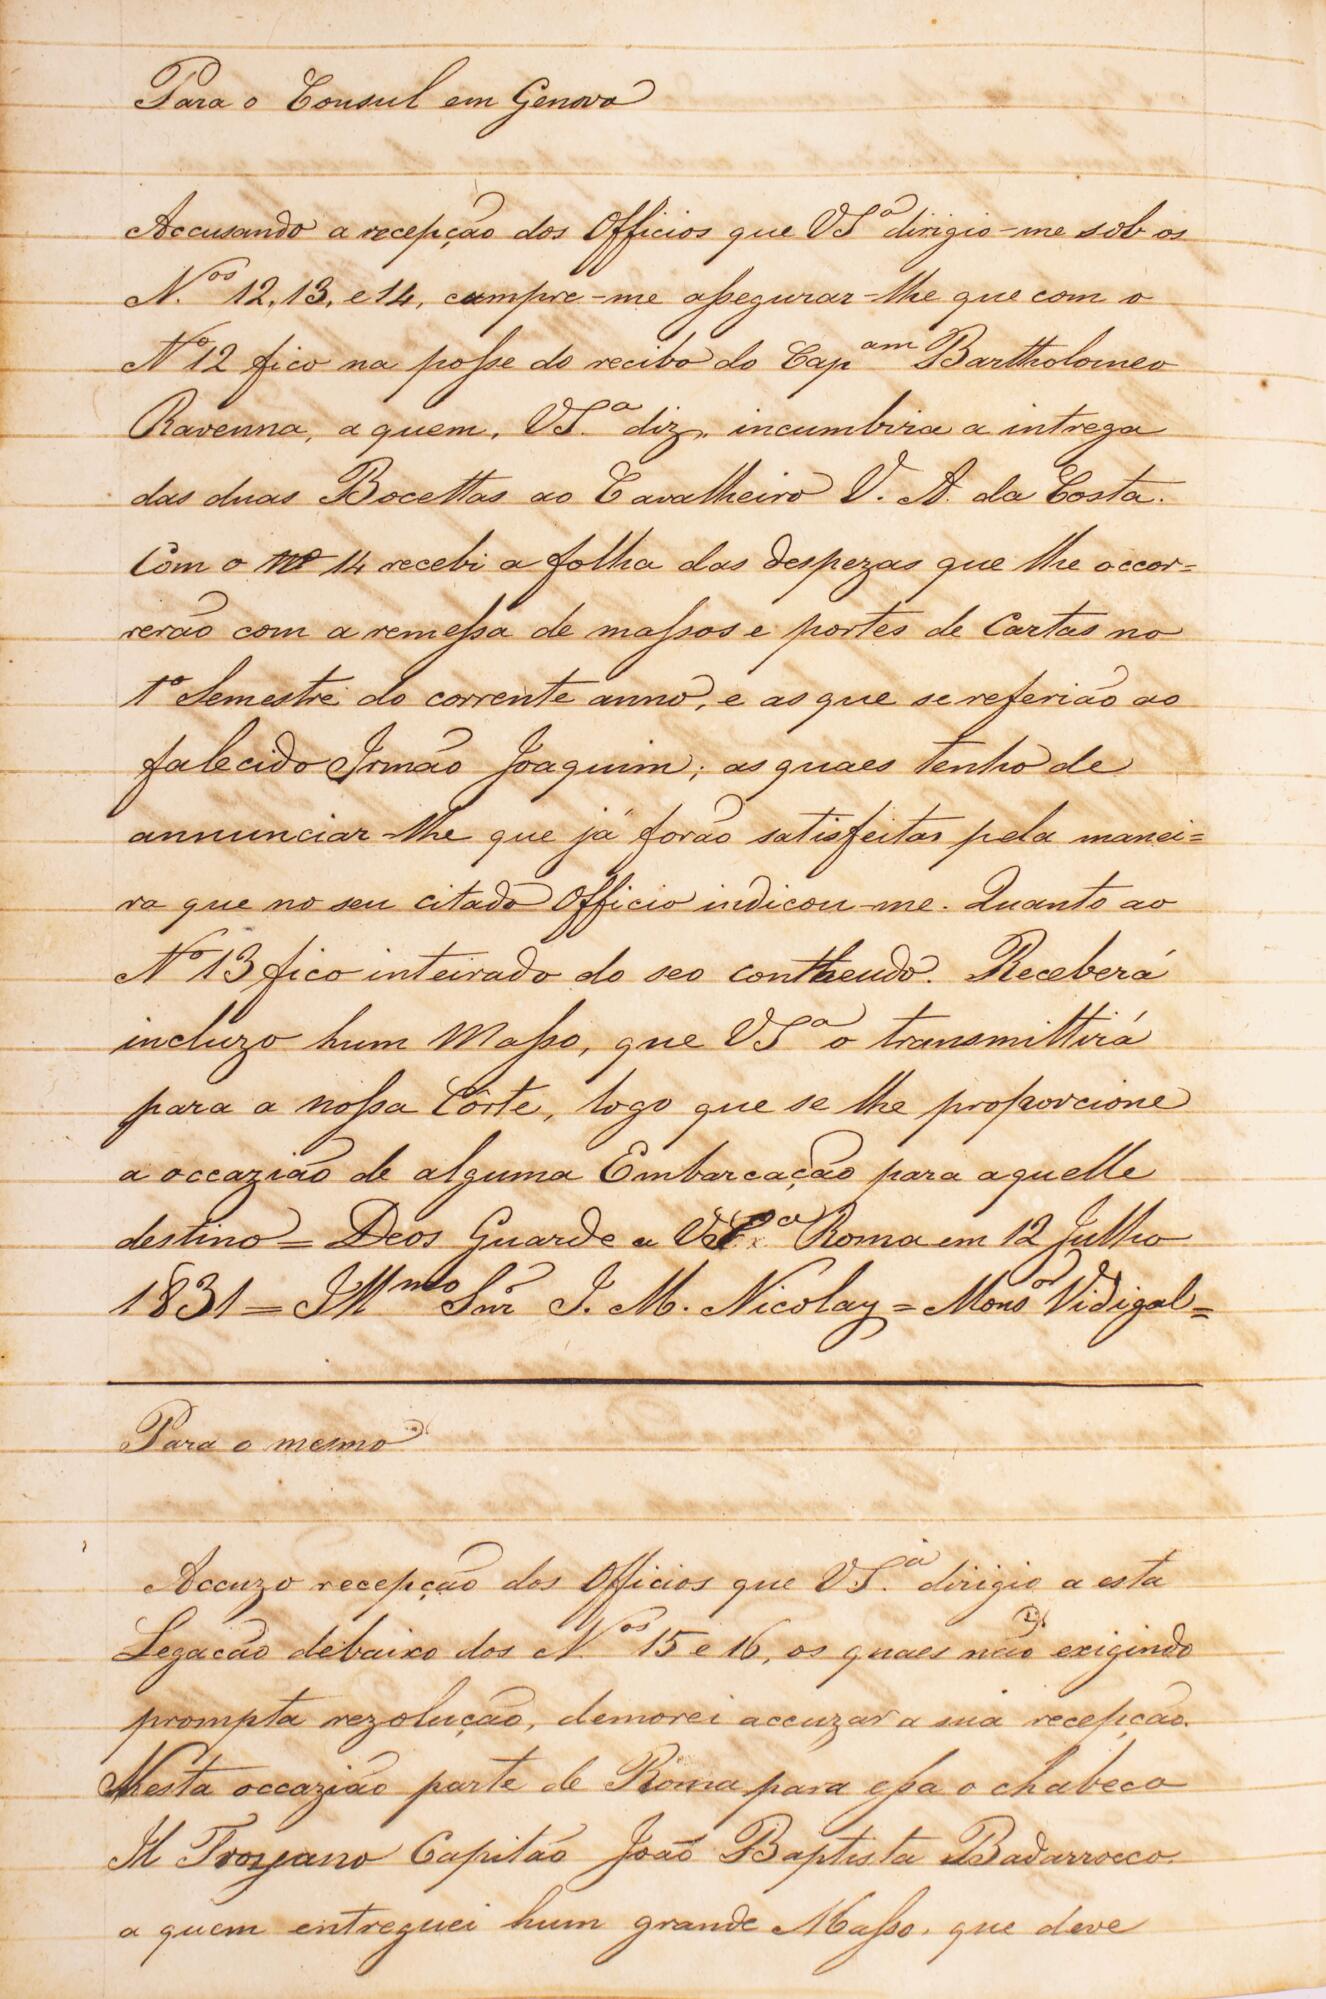 Para o Consul em Genova
Accusando a recepção dos Officios que VSª dirigio-me sob os
N.ºˢ 12, 13, e 14, cumpre-me assegurar-lhe que com o
Nº 12 fico na posse do recibo do Capᵃᵐ Bartholomeo
Ravenna, a quem, VS.ª diz, incumbira a intrega
das duas Bocettas ao Cavalheiro V. A. da Costa.
Com o Nº 14 recebi a folha das despezas que lhe occor=
rerão com a remessa de massos e portes de Cartas no
1º Semestre do corrente anno, e as que se referião ao
falecido Irmão Joaquim; as quaes tenho de
annunciar-lhe que já forão satisfeitas pela manei=
ra que no seu citado Officio indicou-me. Quanto ao
Nº 13 fico inteirado do seo contheudo. Receberá
incluzo hum Masso, que VSª o transmittirá
para a nossa Côrte, logo que se lhe proporcione
a occazião de alguma Embarcação para aquelle
destino = Deos Guarde a VSª Roma em 12 Julho
1831 = Illᵐᵒ Snr̃ J. M. Nicolay = Monsᵒʳ Vidigal =
Para o mesmo
Accuzo recepção dos Officios que VS.ª dirigio a esta
Legacão debaixo dos N.ºˢ 15 e 16, os quaes não exigindo
prompta rezolução, demorei accuzar a sua recepção.
Nesta occazião parte de Roma para essa o chabeco
Il Troyano Capitão João Baptista Badarrocco.
a quem entreguei hum grande Masso, que deve